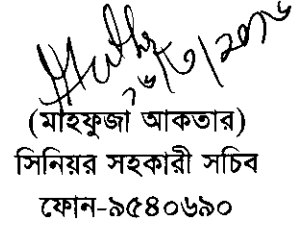 ২৬/৬/২০১৬
(মাহফুজা আকতার)
সিনিয়র সহকারী সচিব
ফোন-৯৫৪০৬৯০